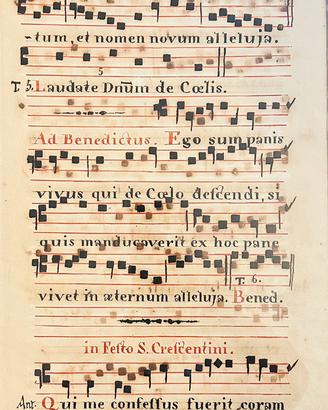 -tum, et nomen novum alleluja.
T. 5. Laudate Dnūm de Cœlis.
Ad Benedictus. Ego sum panis
vivus qui de Cœlo descendi, si
quis manducaverit ex hoc pane
T. 6.
vivet in æternum alleluja. Bened.
in Festo S. Crescentini.
Ant. Qui me confessus fuerit coram